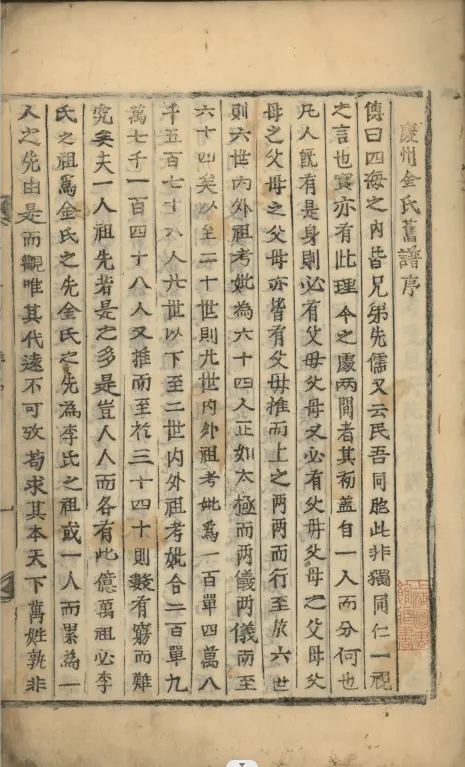 慶州金氏舊譜序
傳曰四海之內皆兄弟先儒又云民吾同胞此非獨同仁一視
之言也實亦有此理今之處兩間者其初盖自一人而分何也
凡人旣有是身則必有父母父母又必有父母父母之父母父
母之父母之父母亦皆有父母推而上之兩兩而行至於六世
則六世內外祖考妣為六十四人正如太極而兩儀兩儀而至
六十四矣以至二十世則九世內外祖考妣爲一百單四萬八
千五百七十六人廿世以下至二世內外祖考妣合二百單九
萬七千一百四十八人又推而至於三十四十則數有窮而難
究矣夫一人祖先若是之多是豈人人而各有此億萬祖必李
氏之祖爲金氏之先金氏之先為李氏之祖或一人而累為一
人之先由是而觀唯其代遠不可攷苟求其本天下萬姓孰非